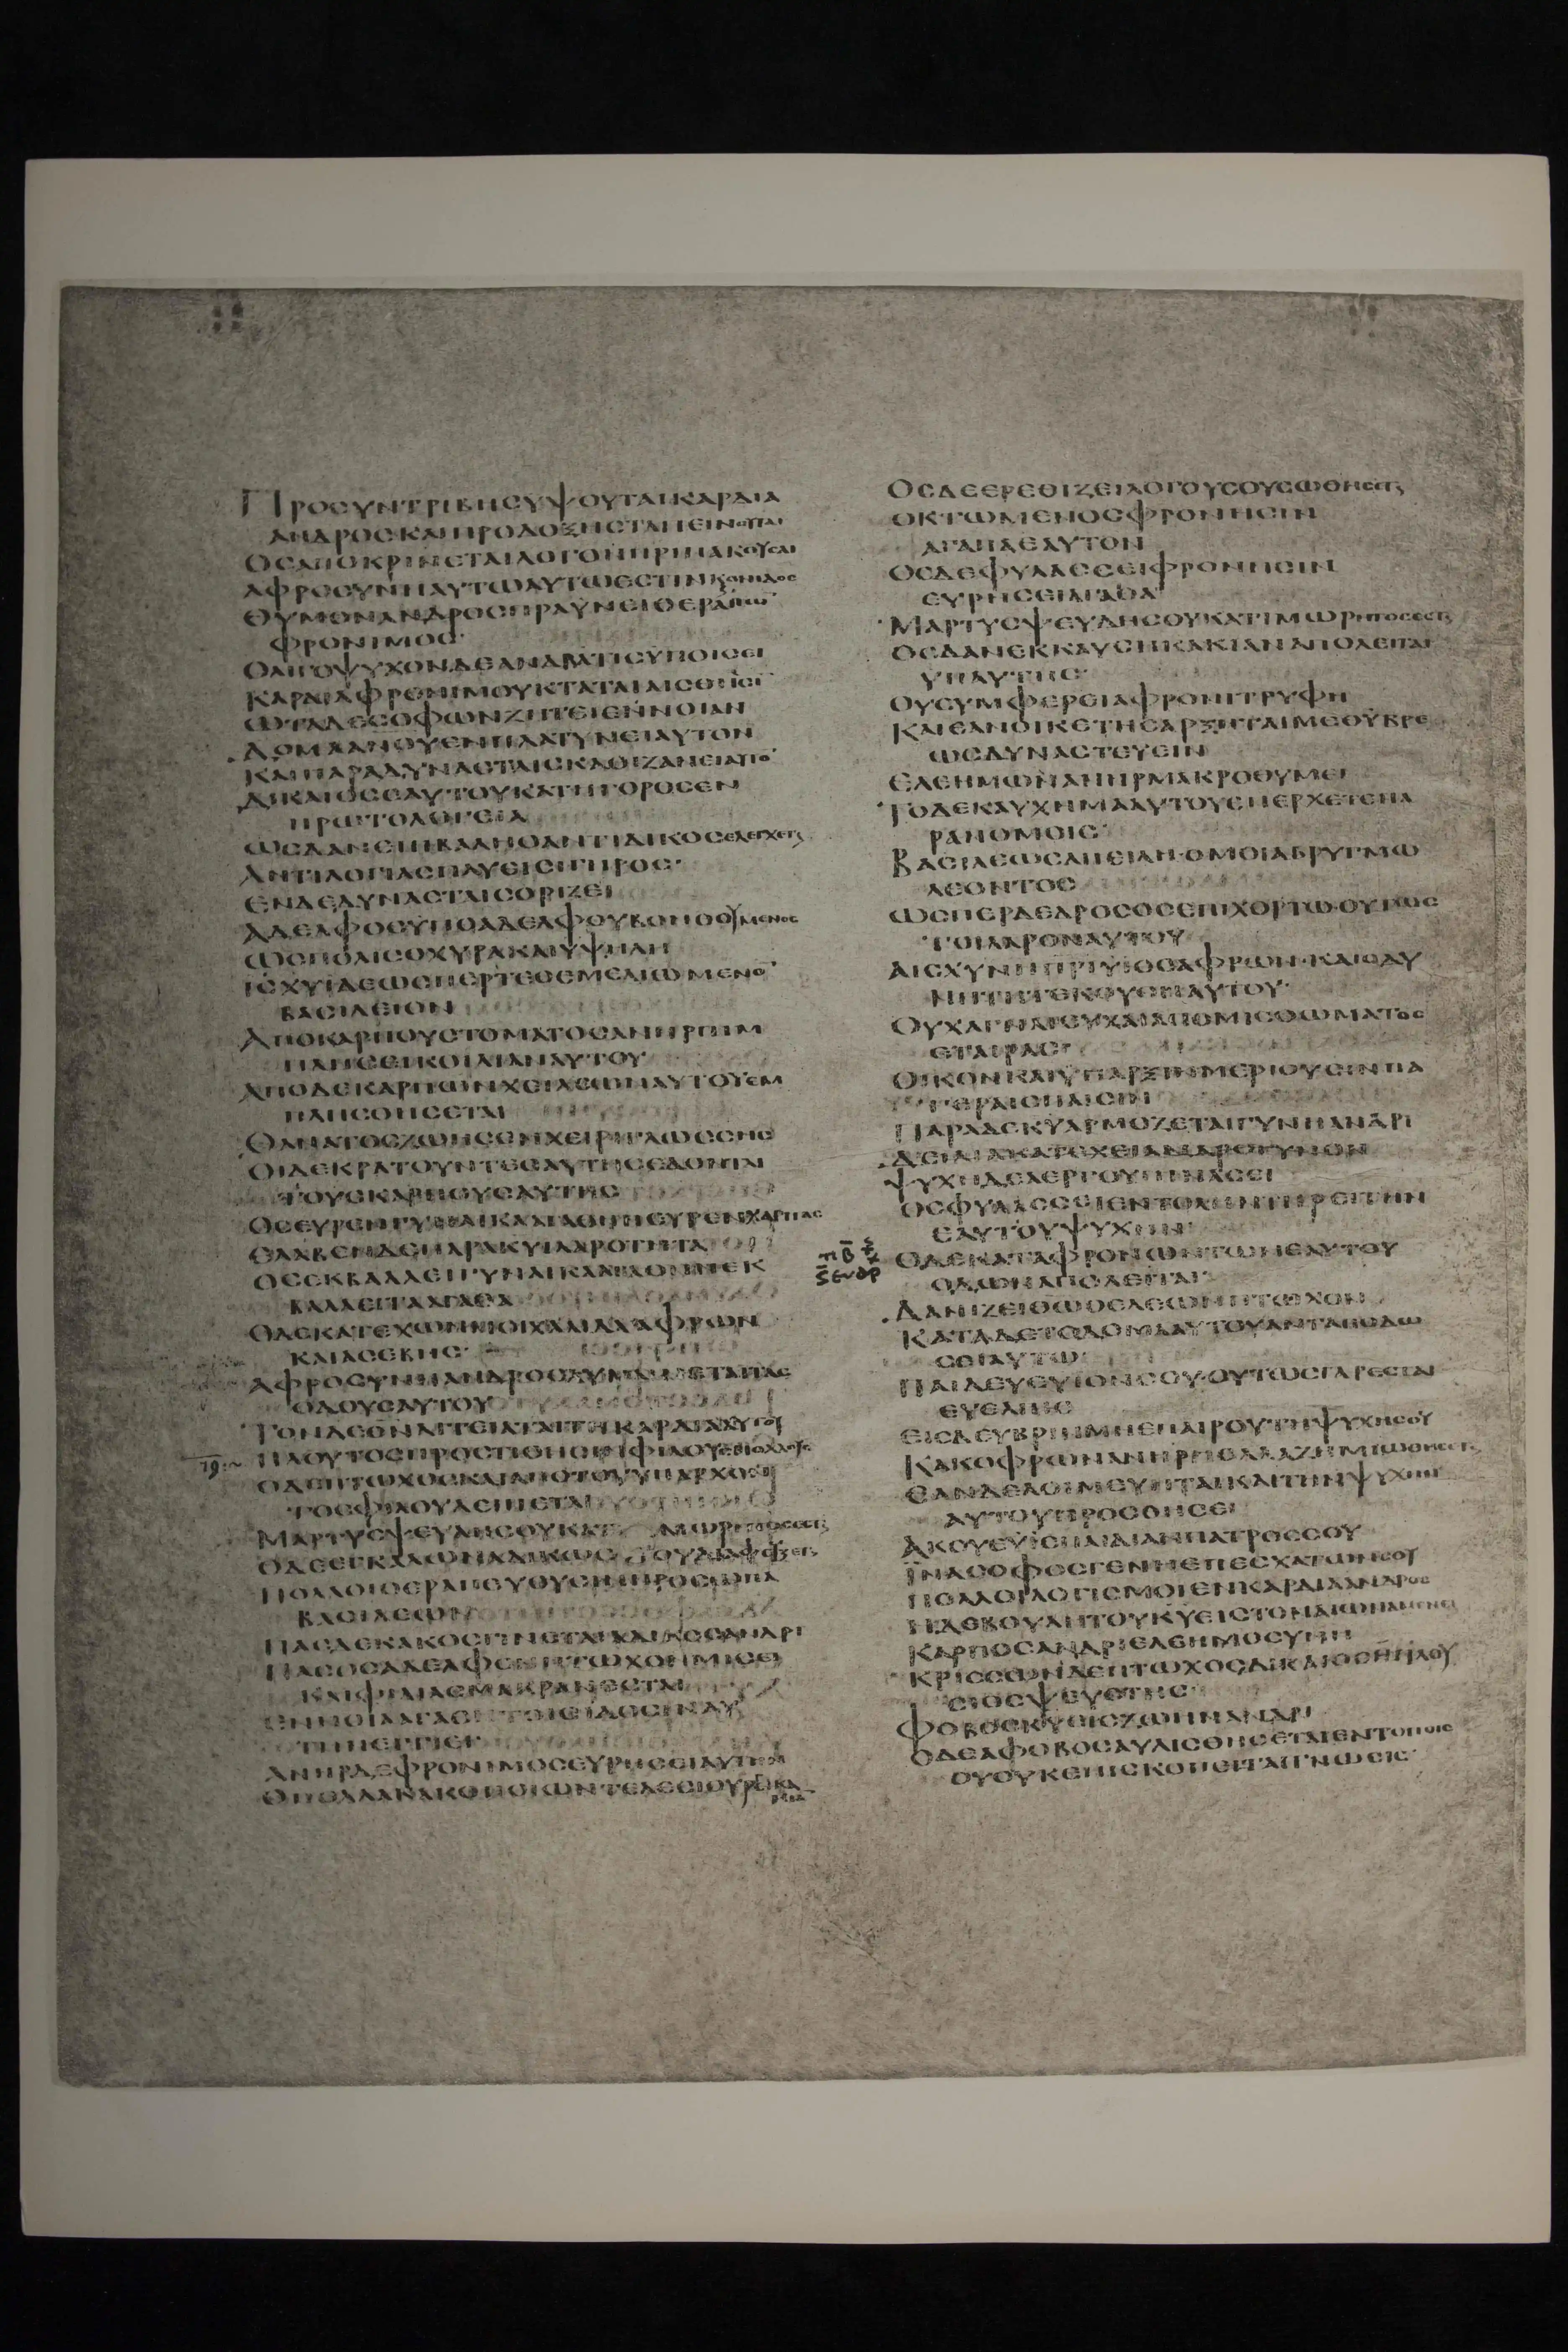 ΠΡΟΣΥΝΤΡΙΒΗΣΥΨΟΥΤΑΙΚΑΡΔΙΑ
ΑΝΔΡΟΣΚΑΙΠΡΟΔΟΞΗΣΤΑΠΕΙΝΟΥΤΑΙ
ΟΣΑΠΟΚΡΙΝΕΤΑΙΛΟΓΟΝΠΡΙΝΑΚΟΥΣΑΙ
ΑΦΡΟΣΥΝΗΑΥΤΩΑΥΤΩΕΣΤΙΝ
ΘΥΜΟΝΑΝΔΡΟΣΠΡΑΥΝΕΙΘΕΡΑΠΩ
ΦΡΟΝΙΜΟΣ
ΟΛΙΓΟΨΥΧΟΝΔΕΑΝΔΡΑΤΙΣΥΠΟΙΣΕΙ
ΚΑΡΔΙΑΦΡΟΝΙΜΟΥΚΤΑΤΑΙΑΙΣΘΗΣΙ
ΩΤΑΔΕΣΟΦΩΝΖΗΤΕΙΕΝΝΟΙΑΝ
ΔΟΜΑΑΝΟΥΕΝΠΛΑΤΥΝΕΙΑΥΤΟΝ
ΚΑΙΠΑΡΑΔΥΝΑΣΤΑΙΣΚΑΘΙΖΑΝΕΙΑΥΤΟ
ΔΙΚΑΙΟΣΕΑΥΤΟΥΚΑΤΗΓΟΡΟΣΕΝ
ΠΡΩΤΟΛΟΓΕΙΑ
ΩΣΔΑΝΕΠΙΒΑΛΗΟΑΝΤΙΔΙΚΟΣΕΛΕΓΧΕΤΑΙ
ΑΝΤΙΛΟΓΙΑΣΠΑΥΕΙΣΙΓΗΡΟΣ
ΕΝΔΕΔΥΝΑΣΤΑΙΣΟΡΙΖΕΙ
ΑΔΕΛΦΟΣΥΠΟΑΔΕΛΦΟΥΒΟΗΘΟΥΜΕΝΟΣ
ΩΣΠΟΛΙΣΟΧΥΡΑΚΑΙΥΨΗΛΗ
ΙΣΧΥΙΔΕΩΣΠΕΡΤΕΘΕΜΕΛΙΩΜΕΝΟ
ΒΑΣΙΛΕΙΟΝ
ΑΠΟΚΑΡΠΟΥΣΤΟΜΑΤΟΣΑΝΗΡΠΙΜ
ΠΛΗΣΕΙΚΟΙΛΙΑΝΑΥΤΟΥ
ΑΠΟΔΕΚΑΡΠΩΝΧΕΙΛΕΩΝΑΥΤΟΥΕΜ
ΠΛΗΣΘΗΣΕΤΑΙ
ΘΑΝΑΤΟΣΖΩΗΣΕΝΧΕΙΡΙΓΛΩΣΣΗΣ
ΟΙΔΕΚΡΑΤΟΥΝΤΕΣΑΥΤΗΣΕΔΟΝΤΑΙ
ΤΟΥΣΚΑΡΠΟΥΣΑΥΤΗΣ
ΟΣΕΥΡΕΝΓΥΝΑΙΚΑΑΓΑΘΗΝΕΥΡΕΝΧΑΡΙΤΑΣ
ΕΛΑΒΕΝΔΕΠΑΡΑΚΥΙΛΑΡΟΤΗΤΑ
ΟΣΕΚΒΑΛΛΕΙΓΥΝΑΙΚΑΑΓΑΘΗΝΕΚ
ΒΑΛΛΕΙΤΑΑΓΑΘΑ
ΟΔΕΚΑΤΕΧΩΝΜΟΙΧΑΛΙΔΑΑΦΡΩΝ
ΚΑΙΑΣΕΒΗΣ
ΑΦΡΟΣΥΝΗΑΝΔΡΟΣΛΥΜΑΙΝΕΤΑΙΤΑΣ
ΟΔΟΥΣΑΥΤΟΥ
ΤΟΝΔΕΘΝΑΙΤΕΙΑΤΑΙΤΗΚΑΡΔΙΑΑΥΤΟΥ
ΠΛΟΥΤΟΣΠΡΟΣΤΙΘΗΣΙΦΙΛΟΥΣΠΟΛΛΟΥΣ
ΟΔΕΠΤΩΧΟΣΚΑΙΑΠΟΤΟΥΥΠΑΡΧΟΝ
ΤΟΣΦΙΛΟΥΛΕΙΠΕΤΑΙ
ΜΑΡΤΥΣΨΕΥΔΗΣΟΥΚΑΤΙΜΩΡΗΤΟΣΕΣΤΑΙ
ΟΔΕΕΓΚΑΛΩΝΑΔΙΚΩΣΟΥΔΙΑΦΕΥΞΕΤΑΙ
ΠΟΛΛΟΙΘΕΡΑΠΕΥΟΥΣΙΝΠΡΟΣΩΠΑ
ΒΑΣΙΛΕΩΝ
ΠΑΣΔΕΚΑΚΟΣΓΙΝΕΤΑΙΟΝΕΙΔΟΣΑΝΔΡΙ
ΠΑΣΟΣΑΔΕΛΦΟΝΠΤΩΧΟΝΜΙΣΕΙ
ΚΑΙΦΙΛΙΑΣΜΑΚΡΑΝΕΣΤΑΙ
ΕΝΝΟΙΑΑΓΑΘΗΤΟΙΣΙΔΟΣΙΝΑΥ
ΤΗΝΕΓΓΙΕΙ
ΑΝΗΡΔΕΦΡΟΝΙΜΟΣΕΥΡΗΣΕΙΑΥΤΗΝ
ΟΠΟΛΛΑΚΑΚΟΠΟΙΩΝΤΕΛΕΣΙΟΥΡΓΕΙΚΑ
ΟΣΔΕΕΡΕΘΙΖΕΙΛΟΓΟΥΣΟΥΣΩΘΗΣΕΤΑΙ
ΟΚΤΩΜΕΝΟΣΦΡΟΝΗΣΙΝ
ΑΓΑΠΑΕΑΥΤΟΝ
ΟΣΔΕΦΥΛΑΣΣΕΙΦΡΟΝΗΣΙΝ
ΕΥΡΗΣΕΙΑΓΑΘΑ
ΜΑΡΤΥΣΨΕΥΔΗΣΟΥΚΑΤΙΜΩΡΗΤΟΣΕΣΤΑΙ
ΟΣΔΑΝΕΚΚΑΥΣΗΚΑΚΙΑΝΑΠΟΛΕΙΤΑΙ
ΥΠΑΥΤΗΣ
ΟΥΣΥΜΦΕΡΕΙΑΦΡΟΝΙΤΡΥΦΗ
ΚΑΙΕΑΝΟΙΚΕΤΗΣΑΡΞΗΤΑΙΜΕΘΥΒΡΕ
ΩΣΔΥΝΑΣΤΕΥΕΙΝ
ΕΛΕΗΜΩΝΑΝΗΡΜΑΚΡΟΘΥΜΕΙ
ΤΟΔΕΚΑΥΧΗΜΑΑΥΤΟΥΕΠΕΡΧΕΤΕΠΑ
ΡΑΝΟΜΟΙΣ
ΒΑΣΙΛΕΩΣΑΠΕΙΛΗ·ΟΜΟΙΑΒΡΥΓΜΩ
ΛΕΟΝΤΟΣ
ΩΣΠΕΡΔΕΔΡΟΣΟΣΕΠΙΧΟΡΤΩ·ΟΥΤΩΣ
ΤΟΙΛΑΡΟΝΑΥΤΟΥ
ΑΙΣΧΥΝΗΠΡΙΥΙΟΣΑΦΡΩΝ·ΚΑΙΟΔΥ
ΝΗΤΗΤΕΚΟΥΣΗΑΥΤΟΥ
ΟΥΧΑΓΝΑΙΕΥΧΑΙΑΠΟΜΙΣΘΩΜΑΤΟΣ
ΕΤΑΙΡΑΣ
ΟΙΚΟΝΚΑΙΥΠΑΡΞΙΝΜΕΡΙΟΥΣΙΝΠΑ
ΤΕΡΑΙΣΠΑΙΣΙΝ
ΠΑΡΑΔΕΚΥΑΡΜΟΖΕΤΑΙΓΥΝΗΑΝΔΡΙ
ΔΕΙΛΙΑΚΑΤΕΧΕΙΑΝΔΡΟΓΥΝΟΝ
ΨΥΧΗΔΕΑΕΡΓΟΥΠΙΝΑΣΕΙ
ΟΣΦΥΛΑΣΣΕΙΕΝΤΟΛΗΝΤΗΡΕΙΤΗΝ
ΕΑΥΤΟΥΨΥΧΗΝ
ΟΔΕΚΑΤΑΦΡΟΝΩΝΤΩΝΕΑΥΤΟΥ
ΟΔΩΝΑΠΟΛΕΙΤΑΙ
ΔΑΝΙΖΕΙΘΩΟΕΛΕΩΝΠΤΩΧΟΝ
ΚΑΤΑΔΕΤΟΔΟΜΑΑΥΤΟΥΑΝΤΑΠΟΔΩ
ΣΕΙΑΥΤΩ
ΠΑΙΔΕΥΕΥΙΟΝΣΟΥ·ΟΥΤΩΣΓΑΡΕΣΤΑΙ
ΕΥΕΛΠΙΣ
ΕΙΣΔΕΥΒΡΙΝΜΗΕΠΑΙΡΟΥΤΗΨΥΧΗΣΟΥ
ΚΑΚΟΦΡΩΝΑΝΗΡΠΟΛΛΑΖΗΜΙΩΘΗΣΕΤΑΙ
ΕΑΝΔΕΛΟΙΜΕΥΗΤΑΙΚΑΙΤΗΝΨΥΧΗΝ
ΑΥΤΟΥΠΡΟΣΘΗΣΕΙ
ΑΚΟΥΕΥΙΕΠΑΙΔΙΑΝΠΑΤΡΟΣΣΟΥ
ΙΝΑΣΟΦΟΣΓΕΝΗΕΠΕΣΧΑΤΩΝΣΟΥ
ΠΟΛΛΟΙΛΟΓΙΣΜΟΙΕΝΚΑΡΔΙΑΑΝΔΡΟΣ
ΗΔΕΒΟΥΛΗΤΟΥΚΥΕΙΣΤΟΝΑΙΩΝΑΜΕΝΕΙ
ΚΑΡΠΟΣΑΝΔΡΙΕΛΕΗΜΟΣΥΝΗ
ΚΡΙΣΣΩΝΔΕΠΤΩΧΟΣΔΙΚΑΙΟΣΗΠΛΟΥ
ΣΙΟΣΨΕΥΣΤΗΣ
ΦΟΒΟΣΚΥΕΙΣΖΩΗΝΑΝΔΡΙ
ΟΔΕΑΦΟΒΟΣΑΥΛΙΣΘΗΣΕΤΑΙΕΝΤΟΠΟΙΣ
ΟΥΟΥΚΕΠΙΣΚΟΠΕΙΤΑΙΓΝΩΣΙΣ